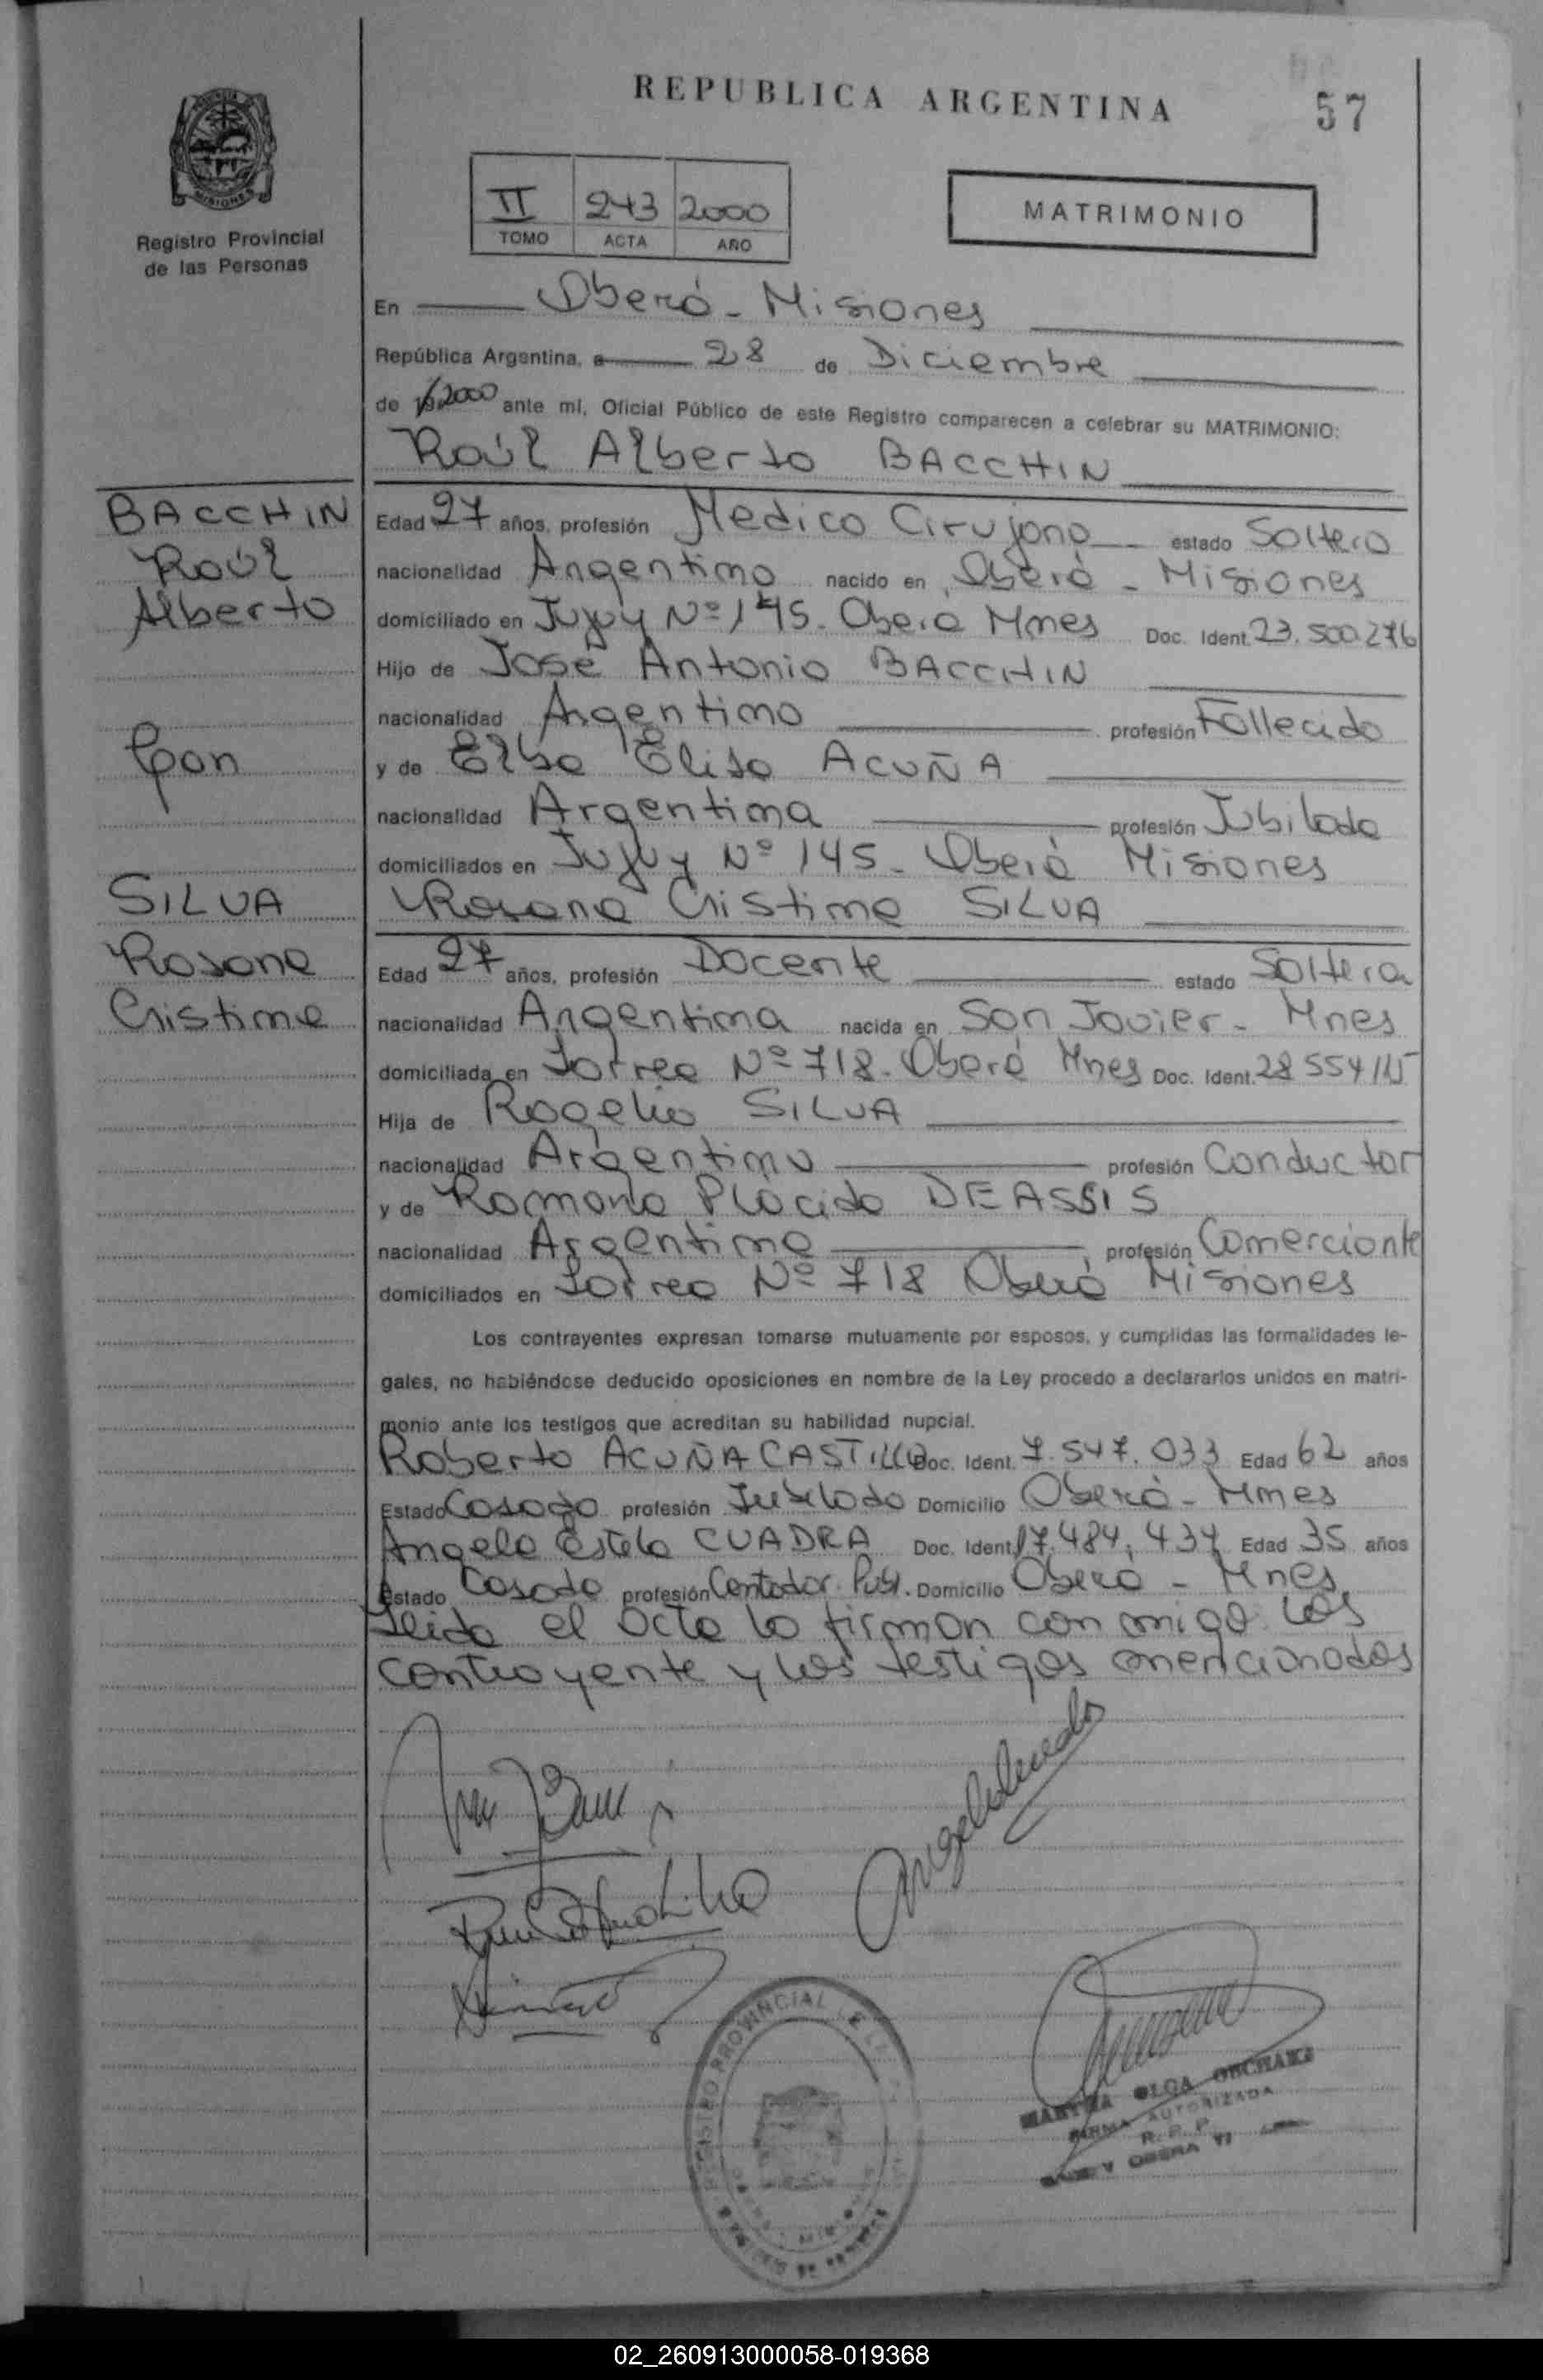 REPUBLICA ARGENTINA
57
MISIONES
Registro Provincial
de las Personas
II 243 2000
TOMO ACTA AÑO
MATRIMONIO
En Oberá - Misiones
República Argentina, a 28 de Diciembre
de 19 2000 ante mí, Oficial Público de este Registro comparecen a celebrar su MATRIMONIO:
Raúl Alberto BACCHIN
BACCHIN
Raúl
Alberto
Con
SILVA
Rosana
Cristina
Edad 27 años, profesión Medico Cirujano estado Soltero
nacionalidad Argentino nacido en Oberá - Misiones
domiciliado en Jujuy Nº 145. Oberá Mnes Doc. Ident. 23.500.276
Hijo de José Antonio BACCHIN
nacionalidad Argentino profesión Fallecido
y de Elba Elisa ACUÑA
nacionalidad Argentina profesión Jubilada
domiciliados en Jujuy Nº 145 - Oberá Misiones
Rosana Cristina SILVA
Edad 27 años, profesión Docente estado Soltera
nacionalidad Argentina nacida en San Javier - Mnes
domiciliada en Nº 718. Oberá Mnes Doc. Ident. 28 554 115
Hija de Rogelio SILVA
nacionalidad Argentino profesión Conductor
y de Ramona Plácida DEASSIS
nacionalidad Argentina profesión Comerciante
domiciliados en Nº 718 Oberá Misiones
Los contrayentes expresan tomarse mutuamente por esposos, y cumplidas las formalidades le-
gales, no habiéndose deducido oposiciones en nombre de la Ley procedo a declararlos unidos en matri-
monio ante los testigos que acreditan su habilidad nupcial.
Roberto ACUÑA CASTILLO Doc. Ident. 7.547.033 Edad 62 años
Estado Casado profesión Jubilado Domicilio Oberá - Mnes
Angela Estela CUADRA Doc. Ident. 17.484.434 Edad 35 años
Estado Casada profesión Contador Publ. Domicilio Oberá - Mnes.
Leida el acta la firman con migo los
contrayente y los testigos mencionados
REGISTRO PROVINCIAL DE LAS
MARTHA OLGA
FIRMA AUTORIZADA
R. P. P.
OBERA
02_260913000058-019368